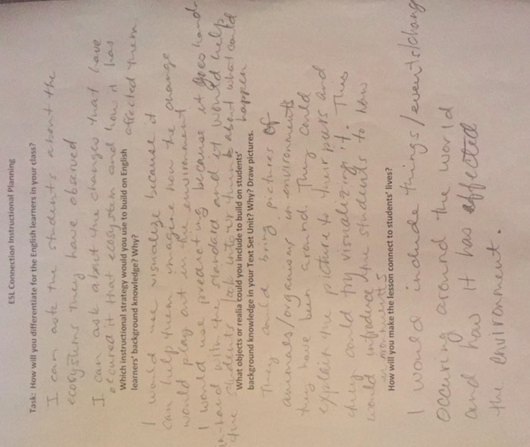 ESL Connection Instructional Planning
Task: How will you differentiate for the English learners in your class?
I can ask the students about the
ecosystems they have observed
I can ask about the changes that have
occured it that ecosystem and how it has
affected them
Which instructional strategy would you use to build on English
learners' background knowledge? Why?
I would use visualize because it
can help them imagine how the change
would play out in the environment
I would use predicting because it goes hand
in the standard and it would help
the students to about what could
happen
What objects or realia could you include to build on students'
background knowledge in your Text Set Unit? Why? Draw pictures.
They could bring pictures of
animals/organisms in environments
they have been around. They could
explain the picture to their peers and
they could try visualizing it. This
would the students to how
How will you make the lesson connect to students' lives?
I would include things/events/change
occuring around the world
and how it has affected
the environment.